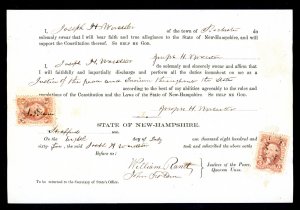 I, Joseph H. Worcester of Rochester do
solemnly swear that I will bear faith and true allegiance to the State of New-Hampshire, and will
support the Constitution thereof. So help me God.
Joseph H. Worcester
I, Joseph H. Worcester do solemnly and sincerely swear and affirm that
I will faithfully and impartially discharge and perform all the duties incumbent on me as a
Justice of the Peace and Quorum throughout the State
according to the best of my abilities agreeably to the rules and
regulations of the Constitution and the Laws of the State of New-Hampshire. So help me God.
Joseph H. Worcester
STATE OF NEW-HAMPSHIRE.
Strafford ss.
On the eighth day of July one thousand eight hundred and
sixty the said Joseph H. Worcester took and subscribed the above oaths
Before us:
William Rand
John
Justices of the Peace,
Quorum Unus.
To be returned to the Secretary of State's Office.